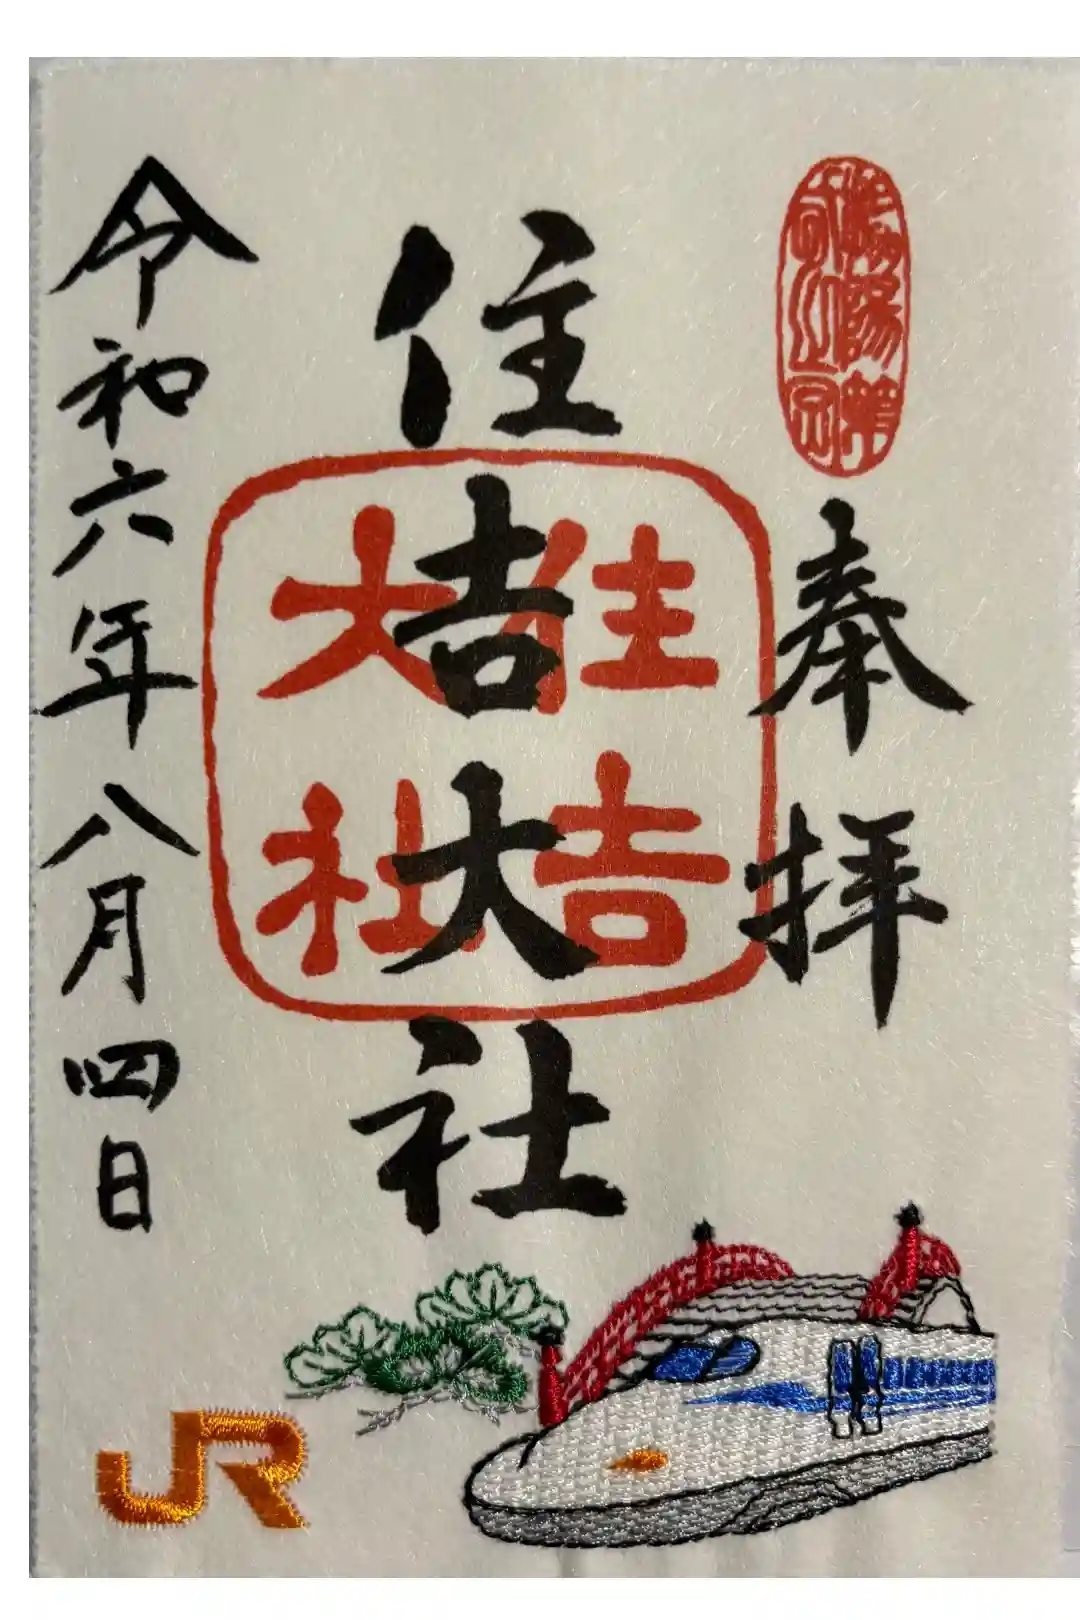 奉拝
住吉大社
住吉
大社
令和六年八月四日
JR